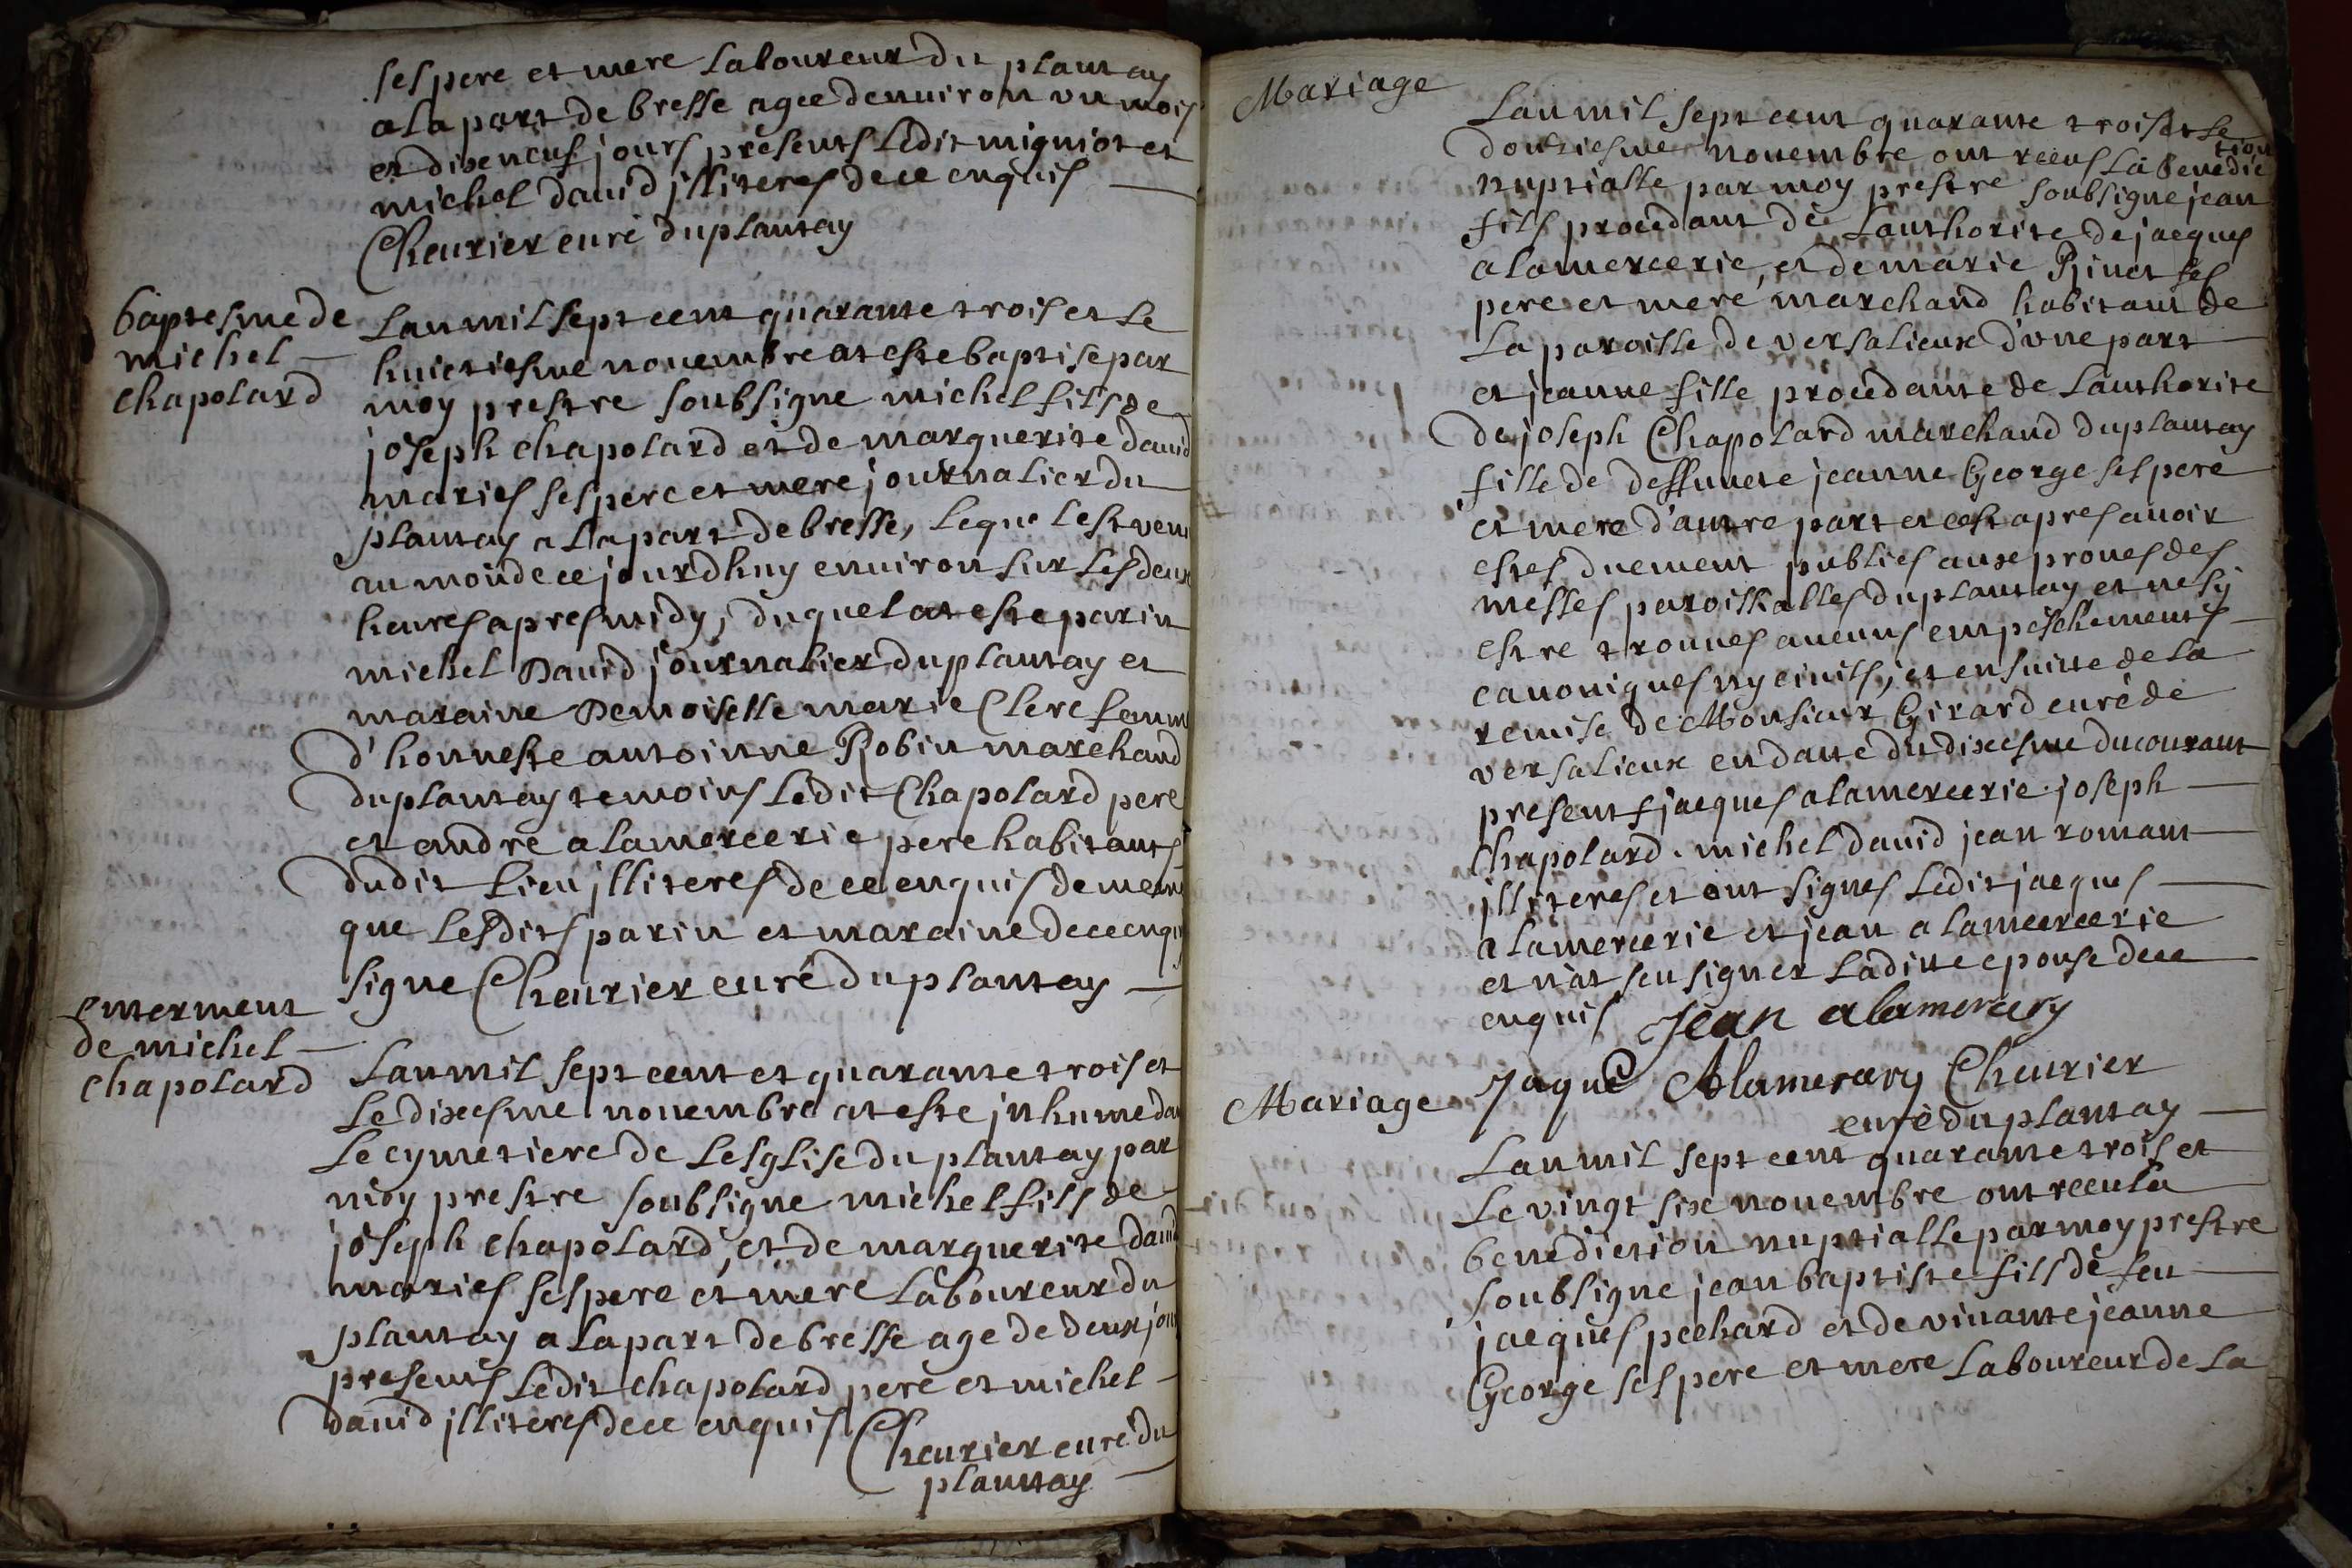 ses pere et mere laboureur du plantay
a la part de bresse agee denuiron vn mois
et dixeneuf jours presents ledit migniot et
michel dauid jlliteres de ce enquis
Cheurier curé du plantay
baptesme de
michel
chapolard
Lan mil sept cent quarante trois et le
huictiesme nouembre at este baptise par
moy prestre soubsigne michel fils de
joseph chapolard et de marguerite dauid
maries ses pere et mere journalier du
plantay a la part de bresse, lequel est venu
au monde ce jourdhuy enuiron sur les deux
heures apres midy, duquel at este parin
michel Dauid journalier du plantay et
maraine Demoiselle marie Clere femm
d'honneste antoinne Robin marchand
du plantay temoins ledit Chapolard pere
et andre alamercerie pere habitants
dudit lieu jlliteres de ce enquis de mem
que lesdits parin et maraine de ce enqui
signe Cheurier curé du plantay
enterment
de michel
chapolard
Lan mil sept cent et quarante trois et
le dixesme nouembre at este jnhume da
le cymetiere de lesglise du plantay par
moy prestre soubsigne michel fils de
joseph chapolard, et de marguerite dauid
maries ses pere et mere laboureur du
plantay a la part de bresse age de deux jou
presents ledit chapolard pere et michel
dauid jlliteres de ce enquis Cheurier curé du
plantay
Mariage
Lan mil sept cent quarante trois et le
douziesme nouembre ont receus la benedic
tion
nuptialle par moy prestre soubsigne jean
fils procedant de lauthorite de jacques
alamercerie, et de marie Rinet ses
pere et mere, marchand habitant de
la paroisse de versalieux d'vne part
et jeanne fille procedante de lauthorite
de joseph Chapolard marchand du plantay
fille de deffuncte jeanne George ses pere
et mere d'autre part et cest apres auoir
estes duement publies aux prones des
messes paroissialles du plantay et ne sy
estre trouues aucuns empeschements
canoniques ny ciuils, et ensuitte de la
remise de Monsieur Girard curé de
versalieux en datte du dixesme du courant
presents jacques alamercerie joseph
Chapolard. michel dauid jean romant
jlliteres et ont signes ledit jacques
alamercerie et jean alamercerie
et n'at seu signer laditte epouse de ce
enquis Jean alamercery
Jaque Alamercery Cheurier
curé du plantay
Mariage
Lan mil sept cent quarante trois et
le vingt six nouembre ont receu la
benediction nuptialle par moy prestre
soubsigne jean baptiste fils de feu
jacques pechard et de viuante jeanne
George ses pere et mere laboureur de la